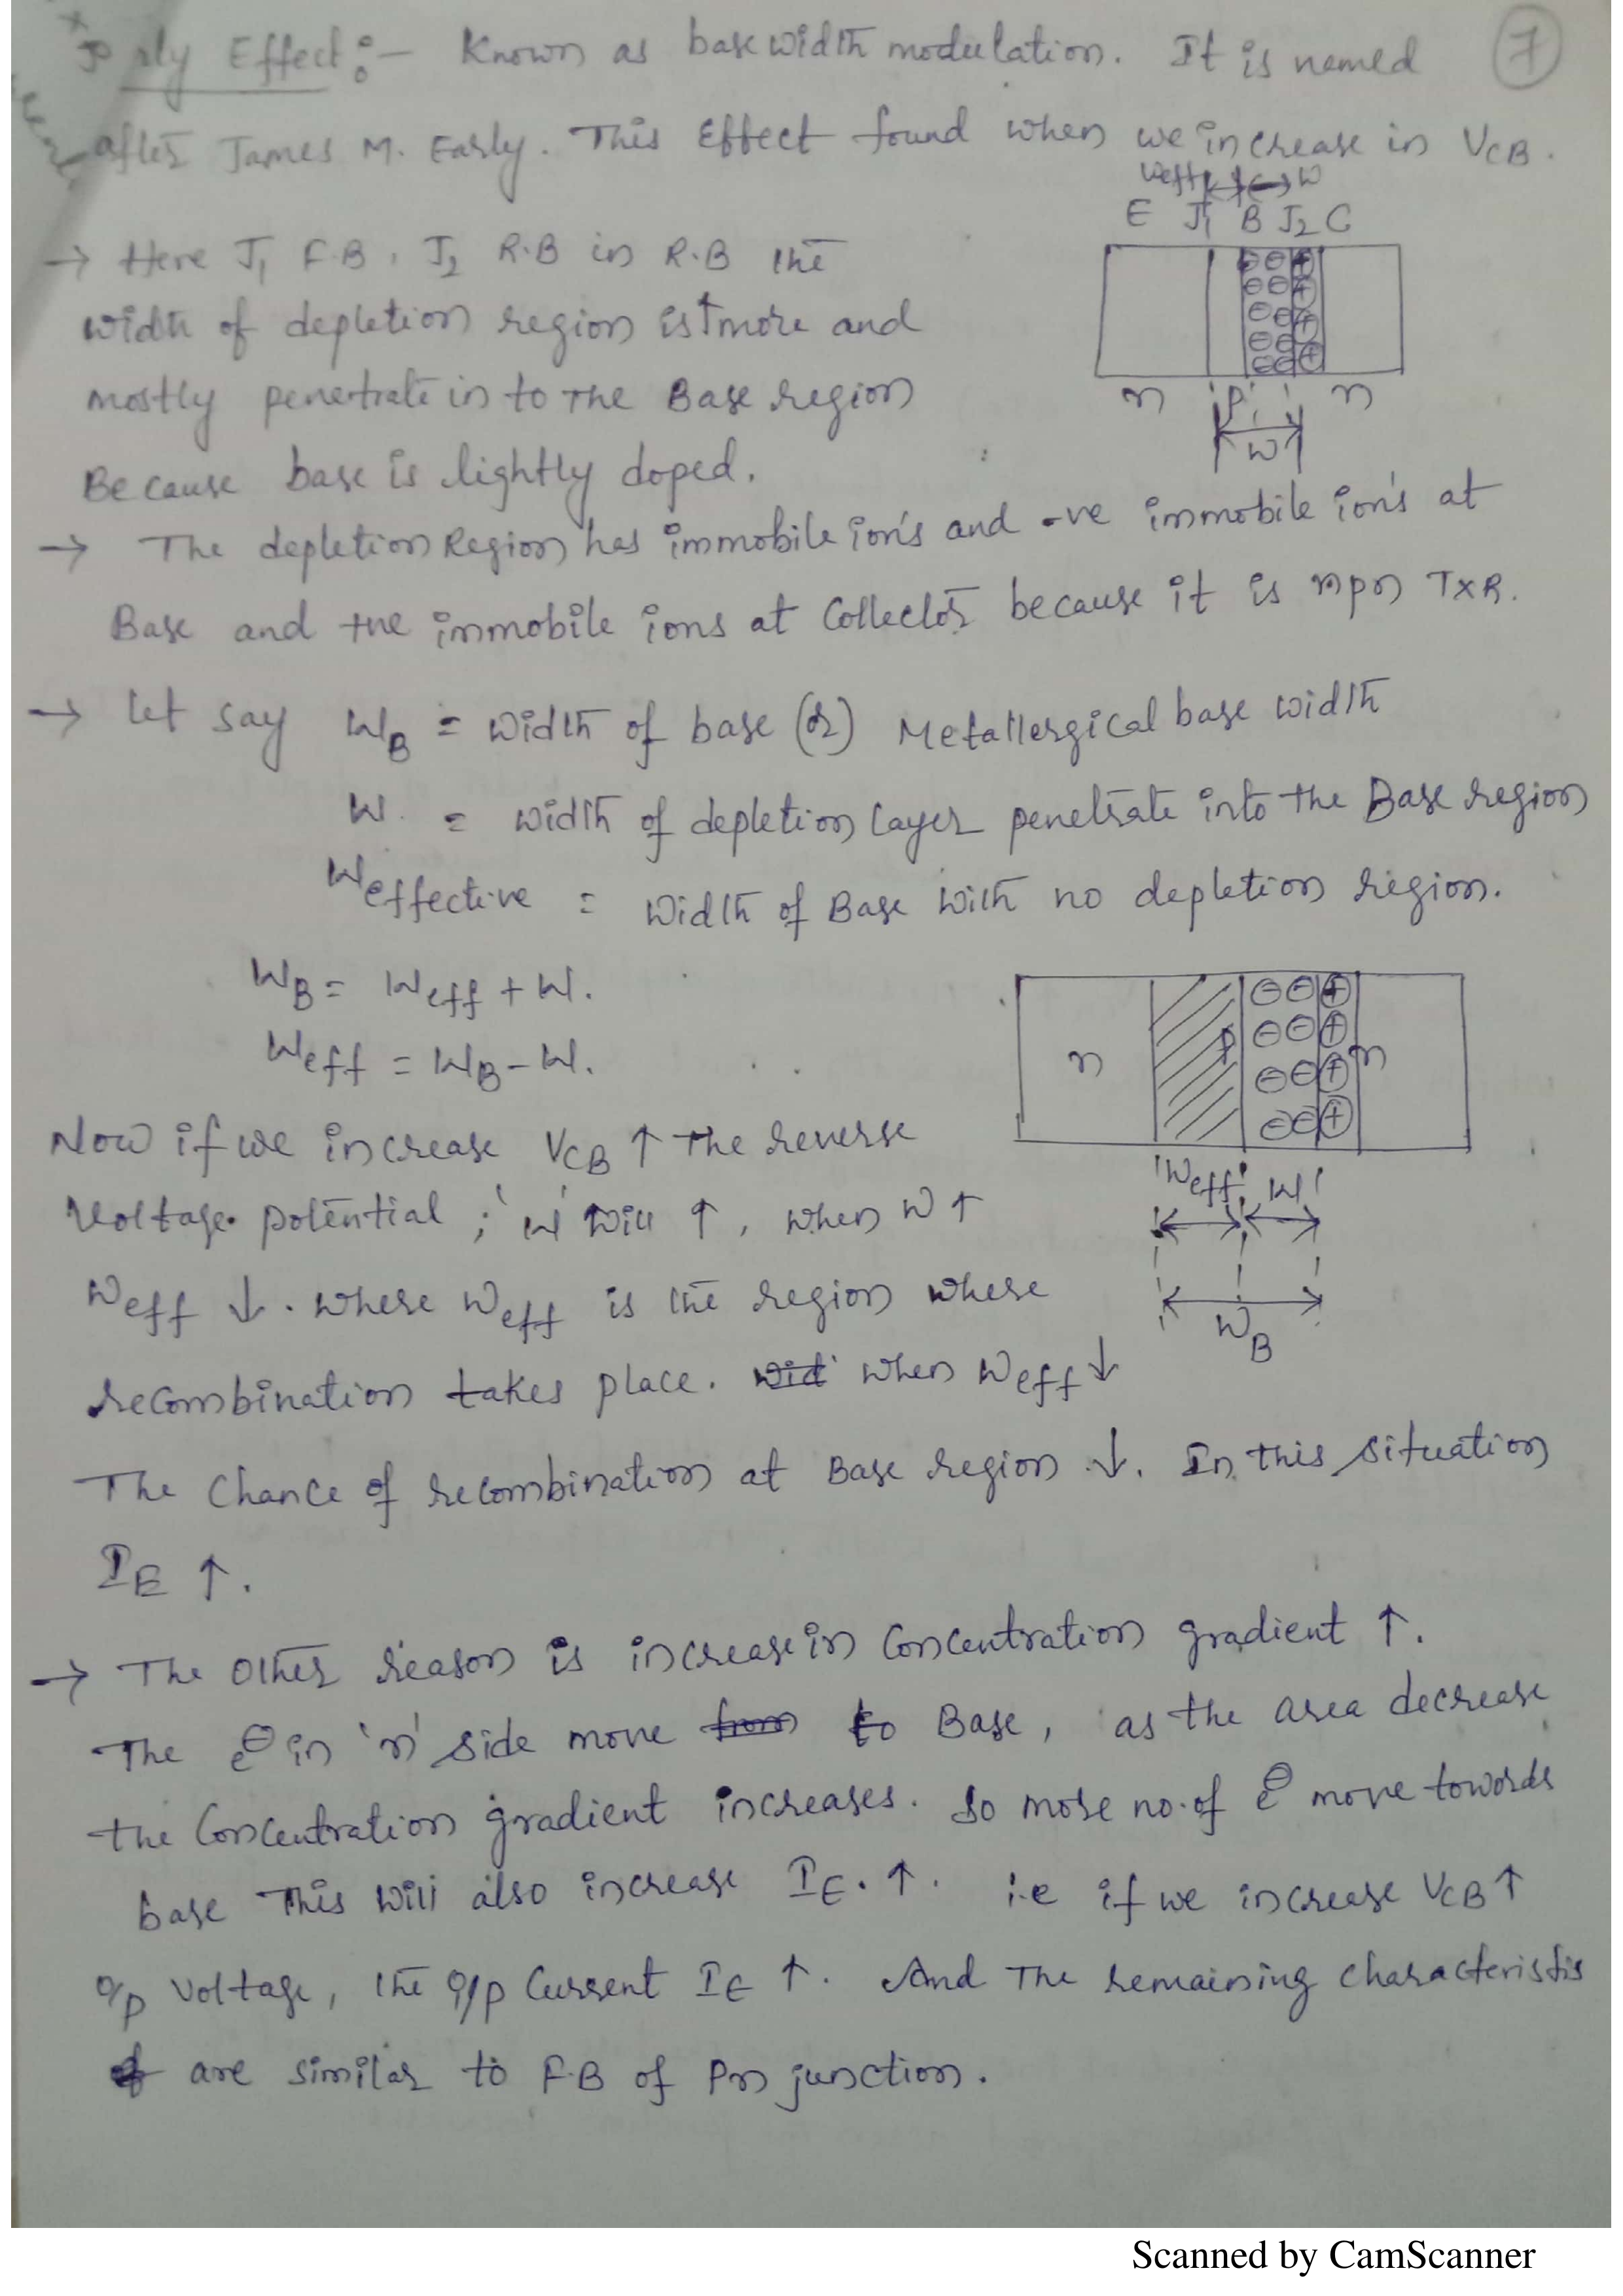 rly Effect :- Known as base width modulation. It is named
7
after James M. Early. This Effect found when we increase in VCB.
Weff W
E J1 B J2 C
→ Here J1 F.B, J2 R.B in R.B the
width of depletion region is ↑ more and
mostly penetrate in to The Base region
n P n
W
Because base is lightly doped.
→ The depletion Region has immobile ion's and -ve immobile ion's at
Base and +ve immobile ions at Collector because it is npn TXR.
→ let say WB = width of base (or) Metallergical base width
W. = width of depletion layer penetrate into the Base region
Weffective = width of Base with no depletion region.
WB = Weff + W.
Weff = WB - W.
n P n
Now if we increase VCB ↑ The reverse
Weff W
Voltage potential ; 'W' will ↑, when W ↑
Weff ↓. where Weff is the region where
WB
recombination takes place. when Weff ↓
The Chance of recombination at Base region ↓. In this situation
IE ↑.
→ The other reason is increase in Concentration gradient ↑.
The e⊖ in 'n' side move to Base, as the area decrease
the Concentration gradient increases. so more no. of e⊖ move towords
base This will also increase IE. ↑. i.e if we increase VCB ↑
o/p Voltage, the i/p Current IE ↑. And The remaining characteristis
are similar to F.B of Pn junction.
Scanned by CamScanner